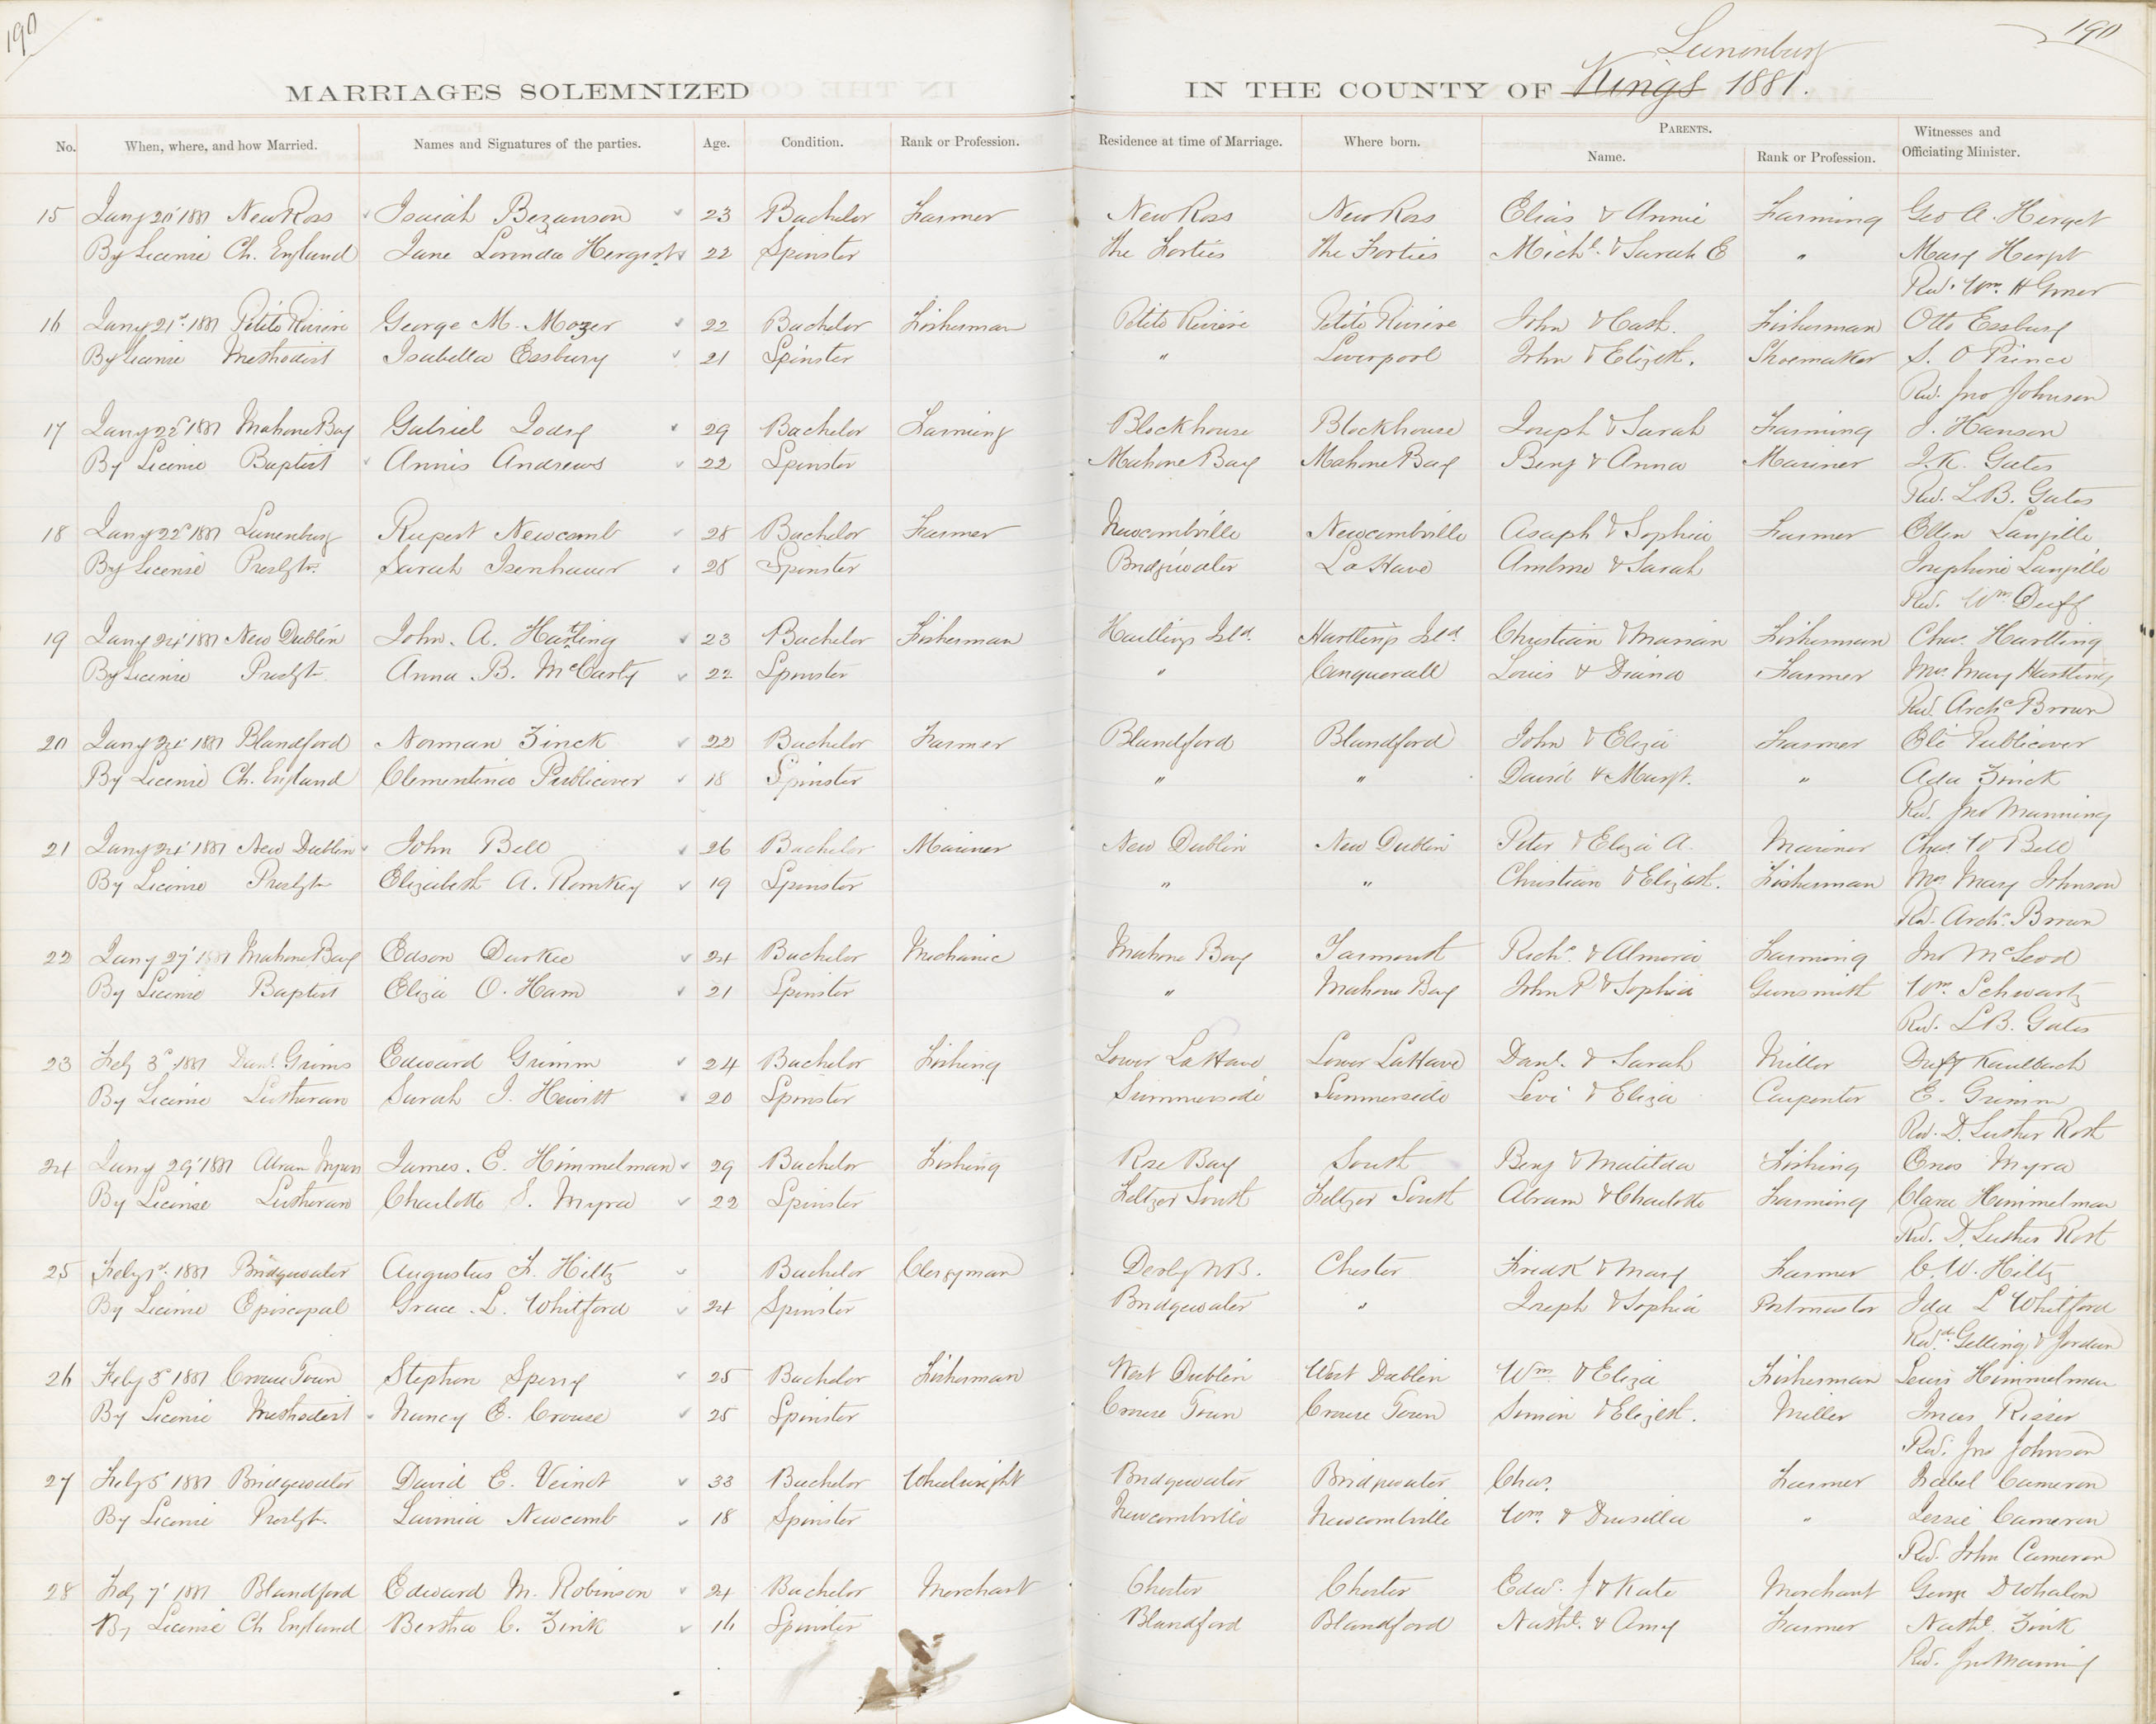 190
190
Lunenburg
MARRIAGES SOLEMNIZED IN THE COUNTY OF Kings 1881.
No. When, where, and how Married. Names and Signatures of the parties. Age. Condition. Rank or Profession. Residence at time of Marriage. Where born. PARENTS. Name. Rank or Profession. Witnesses and Officiating Minister.
15 Jany 20' 1881 New Ross Isaiah Bezanson 23 Bachelor Farmer New Ross New Ross Elias & Annie Farming Geo A. Herget
By License Ch. England Jane Lorinda Hergert 22 Spinster The Forties The Forties Michl. & Sarah E " Mary Hergt
Rev. Wm. H
16 Jany 21st 1881 Petite Riviere George M. Mozer 22 Bachelor Fisherman Petite Riviere Petite Riviere John & Cath. Fisherman Otto Essbury
By License Methodist Isabella Essbury 21 Spinster " Liverpool John & Elizth. Shoemaker S. O Prince
Rev. Jno Johnson
17 Jany 22d 1881 Mahone Bay Gabriel Joudry 29 Bachelor Farming Blockhouse Blockhouse Joseph & Sarah Farming J. Hanson
By License Baptist Annis Andrews 22 Spinster Mahone Bay Mahone Bay Benj & Anna Mariner J. K. Gates
Rev. L B. Gates
18 Jany 22d 1881 Lunenburg Rupert Newcomb 28 Bachelor Farmer Newcombville Newcombville Asaph & Sophia Farmer Ellen Langille
By License Presbytn. Sarah Isenhauer 28 Spinster Bridgewater La Have Ambrose & Sarah Josephine Langille
Rev. Wm Duff
19 Jany 24' 1881 New Dublin John. A. Hartling 23 Bachelor Fisherman Hartlings Isld. Hartlings Isld. Christian & Marian Fisherman Chas. Hartling
By License Presbytn. Anna. B. McCarty 22 Spinster " Conquerall Louis & Diana Farmer Mrs. Mary Hartling
Rev. Archd Brown
20 Jany 24' 1881 Blandford Norman Zinck 22 Bachelor Farmer Blandford Blandford John & Eliza Farmer Eli Publicover
By License Ch. England Clementina Publicover 18 Spinster " " David & Margt. " Ada Zinck
Rev. Jno Manning
21 Jany 24' 1881 New Dublin John Bell 26 Bachelor Mariner New Dublin New Dublin Peter & Eliza A. Mariner Chas. W Bell
By License Presbytn Elizabeth A. Romkey 19 Spinster " " Christian & Elizabt. Fisherman Mrs Mary Johnson
Rev. Archd. Brown
22 Jany 27' 1881 Mahone Bay Edson Durkee 24 Bachelor Mechanic Mahone Bay Yarmouth Richd. & Almira Farming Jno McLeod
By License Baptist Eliza O. Ham 21 Spinster " Mahone Bay John P & Sophia Gunsmith Wm. Schwartz
Rev. L B. Gates
23 Feby 3d 1881 Danl. Grims Edward Grimm 24 Bachelor Fishing Lower La Have Lower LaHave Danl. & Sarah Miller Duff Kaulbach
By License Lutheran Sarah J. Hewitt 20 Spinster Summerside Summerside Levi & Eliza Carpenter E. Grimm
Rev. D. Luther Roth
24 Jany 29' 1881 Abram Myers James. E. Himmelman 29 Bachelor Fishing Rose Bay South Benj & Matilda Fishing Enos Myra
By License Lutheran Charlotte S. Myra 22 Spinster Feltzer South Feltzer South Abram & Charlotte Farming Clara Himmelman
Rev. D. Luther Roth
25 Feby 1st. 1881 Bridgewater Augustus F. Hiltz Bachelor Clergyman Derby N B. Chester Fredk & Mary Farmer C. W. Hiltz
By License Episcopal Grace. L. Whitford 24 Spinster Bridgewater " Joseph & Sophia Postmaster Ida L Whitford
Revd. Gelling & Jordan
26 Feby 3d 1881 Crouse Town Stephen Sperry 25 Bachelor Fisherman West Dublin West Dublin Wm & Eliza Fisherman Lewis Himmelman
By License Methodist Nancy E. Crouse 25 Spinster Crouse Town Crouse Town Simon & Elizbt. Miller Risser
Rev. Jno Johnson
27 Feby 5' 1881 Bridgewater David E. Veinot 33 Bachelor Wheelwright Bridgewater Bridgewater Chas. Farmer Isabel Cameron
By License Presbytn. Lavinia Newcomb 18 Spinster Newcombville Newcombville Wm. & Drusilla " Jessie Cameron
Rev. John Cameron
28 Feby 7' 1881 Blandford Edward M. Robinson 24 Bachelor Merchant Chester Chester Edw. J & Kate Merchant George D Whalen
By License Ch England Bertha C. Zink 16 Spinster Blandford Blandford Nathl. & Amy Farmer Nathl. Zink
Rev. Jno Manning